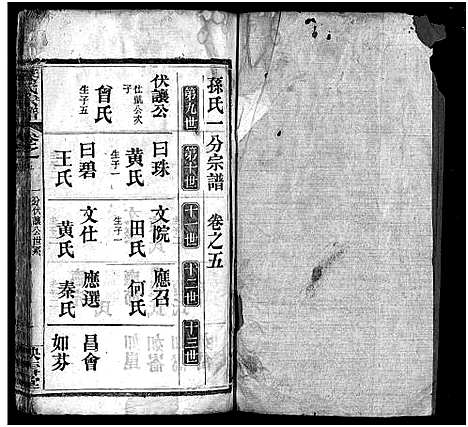 孫氏一分宗譜 卷之五
第九世 第十世 十一世 十二世 十三世
伏讓公 曰珠 文院 應召
仕鳳公次子
黃氏 田氏 何氏
生子一 生子一
曾氏 曰碧 文仕 應選 昌會
生子五
王氏 黃氏 秦氏 如芬
一分伏讓公世系